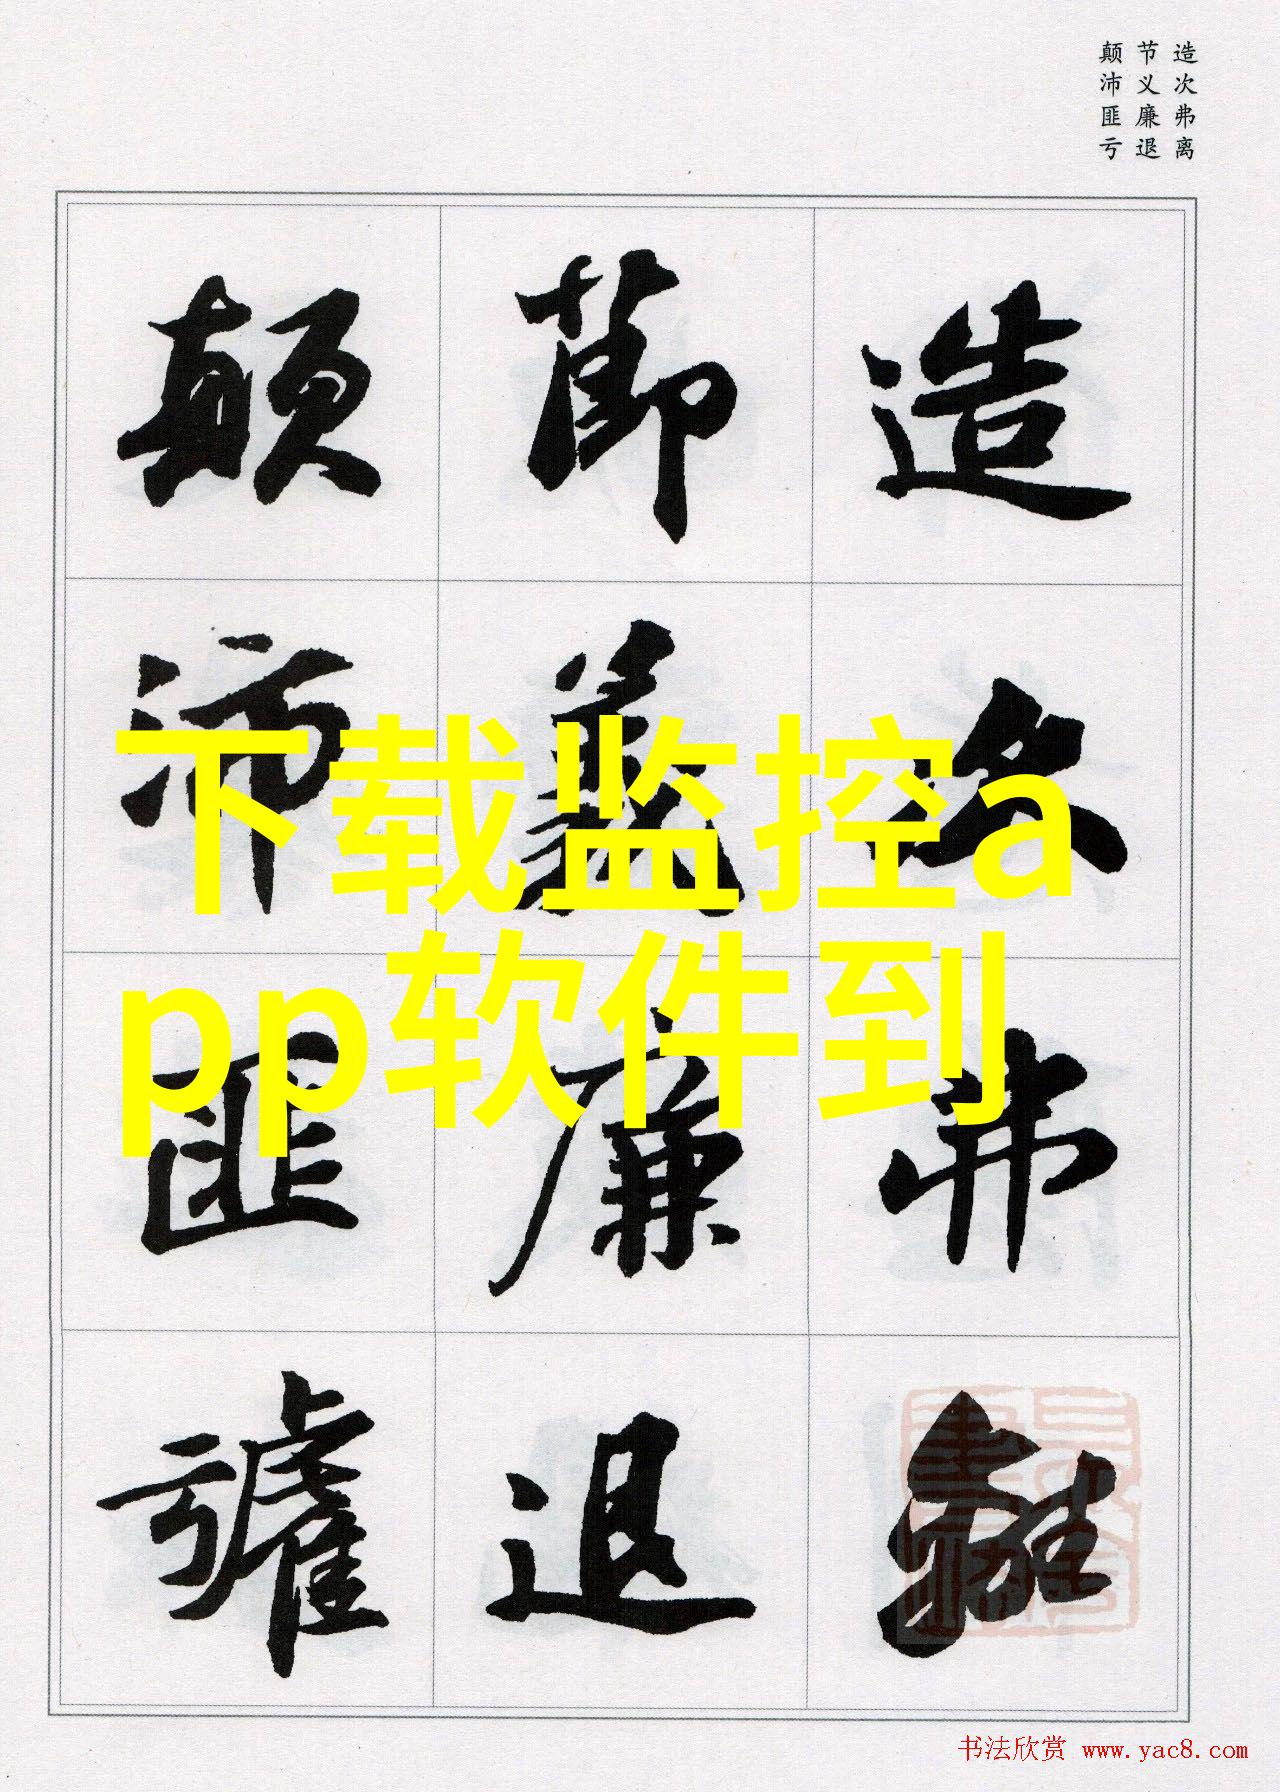 造次弗离
节义廉退
颠沛匪亏
造次弗離
節義廉退
顛沛匪虧
下载监控a
pp软件到
书法欣赏 www.yac8.com